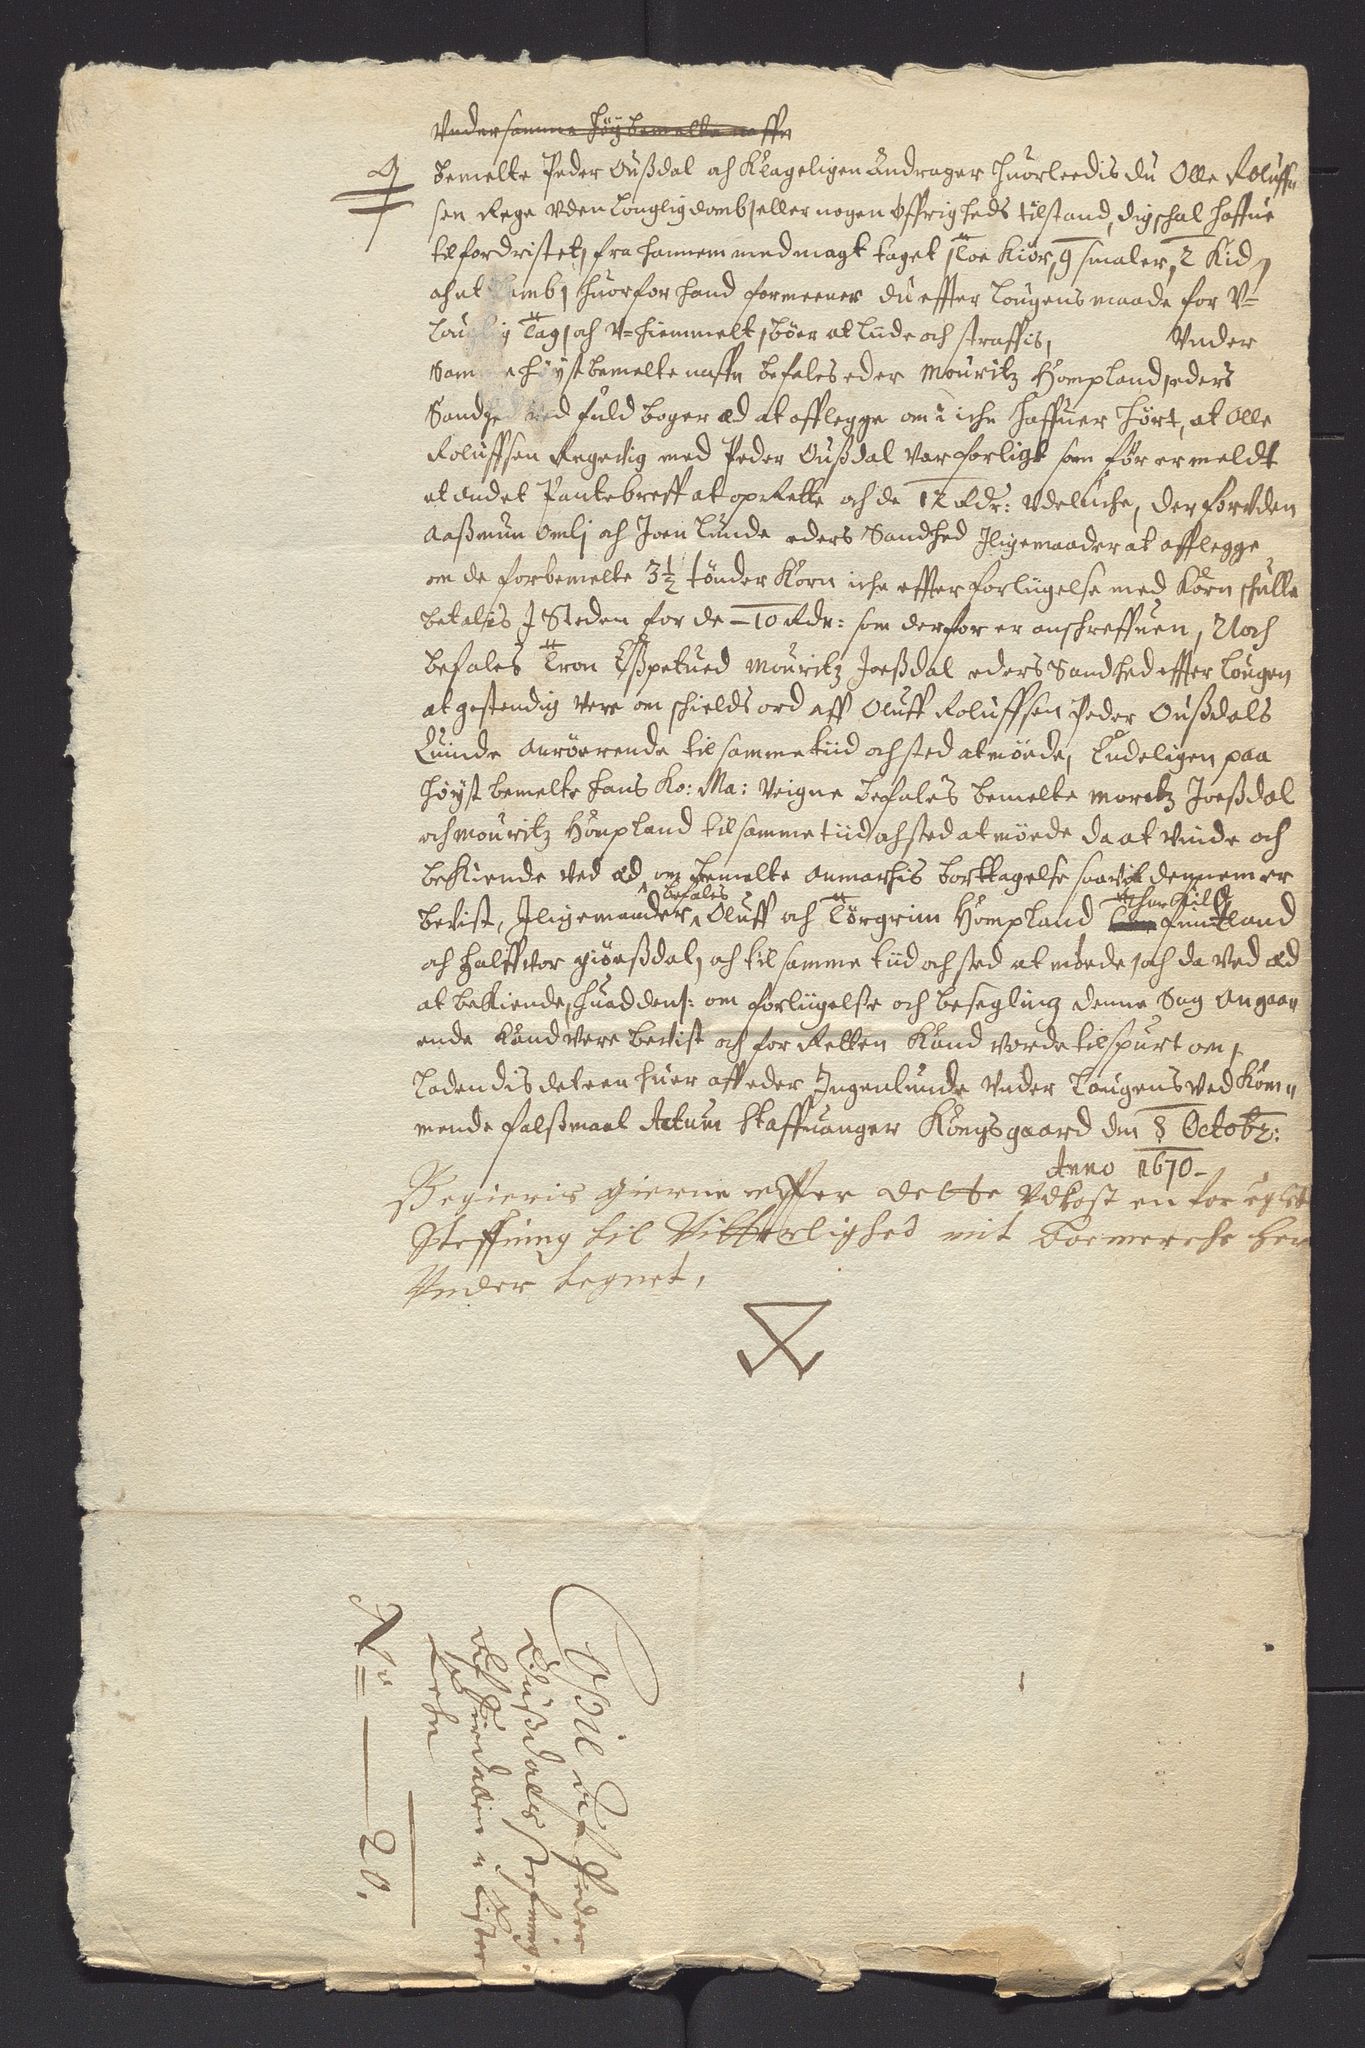 Vnder samme høybemelte naffn
9
bemelte Peder Oußdal och klageligen Andrager huorleedis du Olle Roluff-
sen Rege vden louglig domb, eller nogen øffrigheds tilstand, dig schal haffue
tilfordristet, fra hannem med magt taget, Toe kiør, 9 smaler, 2 Kid,
och et Lamb, huorfor hand formeener du effter Lougens maade for V=
louglig Tag, och V=hiemmelt, bøer at liide och straffis, Vnder
Samme høyst bemelte naffn befales eder Mouritz Hompland, eders
Sandhed ved fuld boger æd at afflegge om i iche haffuer hørt, at Olle
Roluffsen Regevig med Peder Oußdal var forligt som før er meldt
et andet Pantebreff at oprette och de 12 Rdr: vdeluche, der foruden
Aaßmun Omli och Joen Lunde eders Sandhed Jligemaader at afflegge
om de forbemelte 3½ tønder Korn iche effter forlügelse med Korn schulle
betales J Steden for de 10 Rdr: som derfor er anschreffuen, Noch
befales Tron Eßpetued Mouritz Joeßdal eders Sandhed effter Lougen
at gestendig vere om schields ord aff Oluff Roluffsen Peder Oußdals
Quinde anrørende til samme tiid och sted at møede, Endeligen paa
høyst bemelte hans Ko: Ma: veigne befales bemelte Moritz Joeßdal
och Mouritz Hompland til samme tiid och sted at møede da at vinde och
bekiende ved æd om bemelte Anmarchis borttagelse saavit dennem er
befales
bevist, Jligemaader, Oluff och Törgrim Hompland Funtland
och Halffvor giøeßdal, och til samme tiid och sted at møede, och da ved æd
at bekiende, huad dens: om forlügelse och besegling denne Sag angaar-
ende kand vere bevist och for Retten kand vorde tilspurt om,
Ladendis det een huer aff eder Jngenlunde Vnder Lougens ved kom-
mende falßmaal Actum Staffuanger Kongsgaard den 8 Octobr:
Anno 1670-
Begieris gierne effter dette Vdkast en for
Steffning til Vitterlighed mit boemerche her
Vnder tegnet,
peder
Oußdals stefning
Lister
Lehn
No 20.